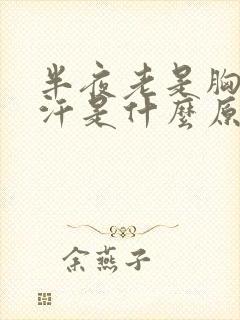 半夜老是胸
汗是什麼原
余燕子